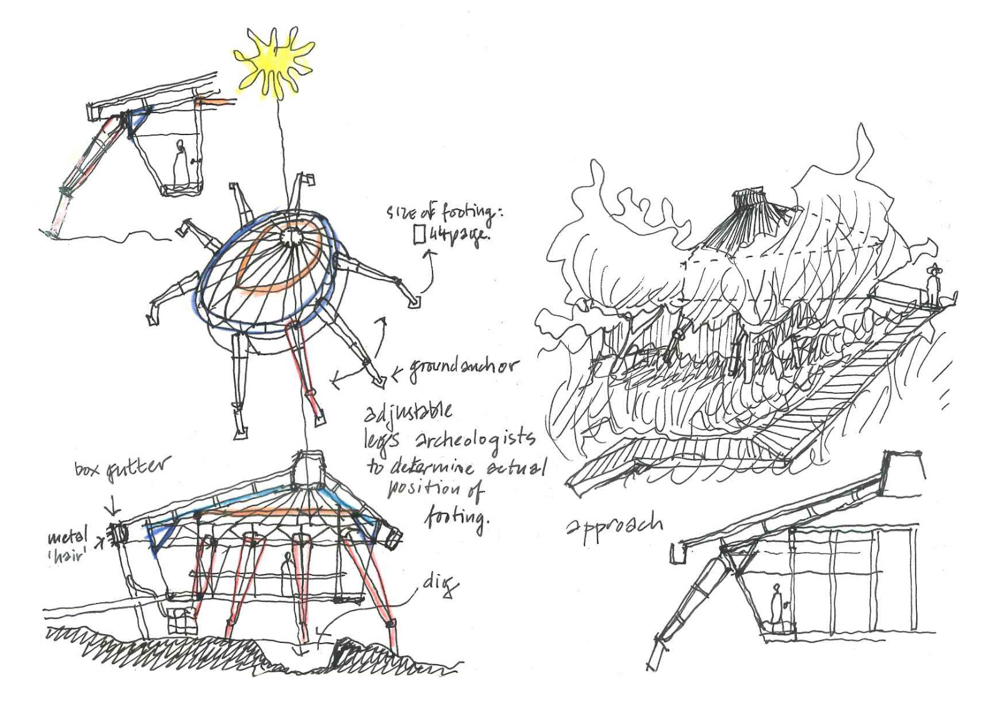 size of footing:
groundanchor
adjustable
legs archeologists
to determine actual
position of
footing.
box gutter
metal
'hair'
dig
approach